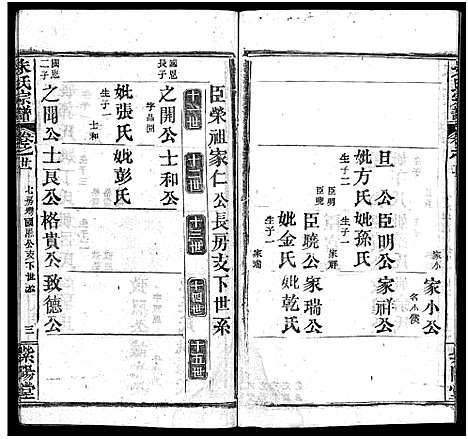 家小公
名小候
家小
旦公臣明公家祥公
妣方氏妣孫氏
生子二
生子一
臣明
臣曉
家祥
臣曉公家瑞公
妣金氏妣乾氏
生子一
家瑞
臣榮祖家仁公長房支下世系
十一世
十二世
十三世
十四世
十五世
國恩長子
之開公士和公
字晶淵
妣張氏妣彭氏
生子一
士和
國恩二子
之閗公士艮公格貴公致德公
朱氏宗譜
卷之廿一
七房灣國恩公支下世系
三
紫陽堂